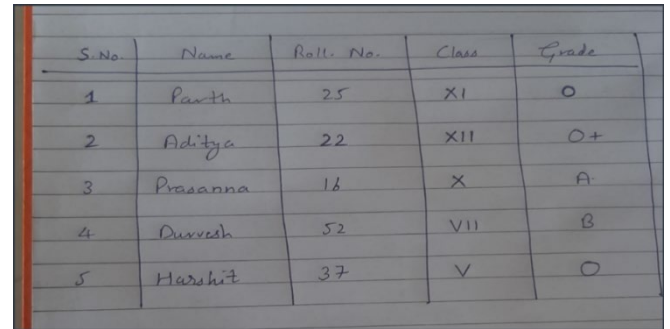 S.No. Name Roll. No. Class Grade
1 Parth 25 XI O
2 Aditya 22 XII O+
3 Prasanna 16 X A.
4 Durvesh 52 VII B
5 Harshit 37 V O